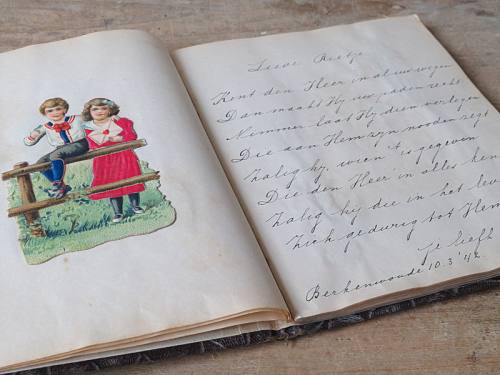 Lieve Rietje
Kent den Heer in al uw wegen
Dan maakt Hij uw paden recht
Nimmer laat Hij dien verlegen
Die aan Hem zijn nooden zegt
Zalig hij, wien 't is gegeven
Die den Heer in alles ken
Zalig hij die in het lev
Zich gedurig tot Hem
Je liefh
Berkenwoude 10.3.'42.